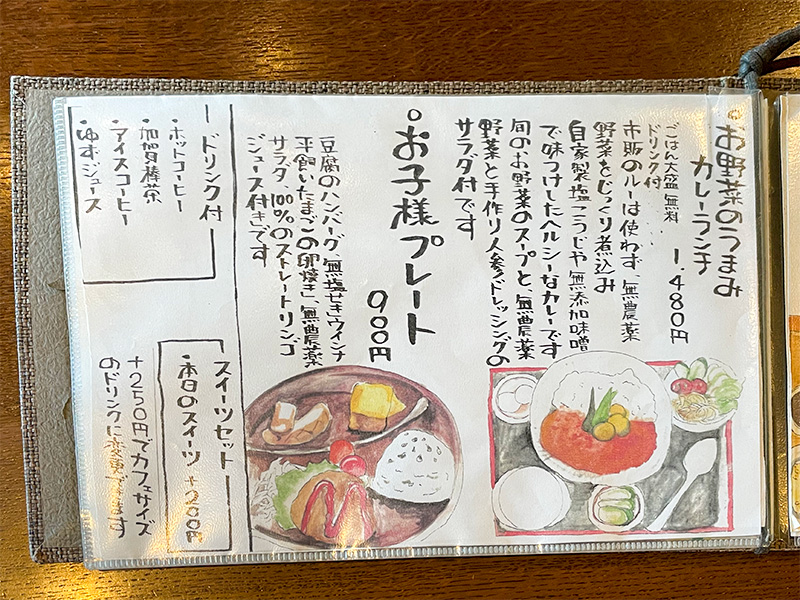 お野菜のうまみ
カレーランチ
1,480円
ごはん大盛無料
ドリンク付
市販のルーは使わず、無農薬
野菜をじっくり煮込み
自家製塩こうじや無添加味噌
で味つけしたヘルシーなカレーです
旬のお野菜のスープと、無農薬
野菜と手作り人参ドレッシングの
サラダ付です
お子様プレート
900円
豆腐のハンバーグ、無塩せきウインナ
平飼いたまごの卵焼き、無農薬
サラダ、100%のストレートリンゴ
ジュース付きです
ドリンク付
・ホットコーヒー
・加賀棒茶
・アイスコーヒー
・ゆずジュース
スイーツセット
・本日のスイーツ +200円
+250円でカフェサイズ
のドリンクに変更できます